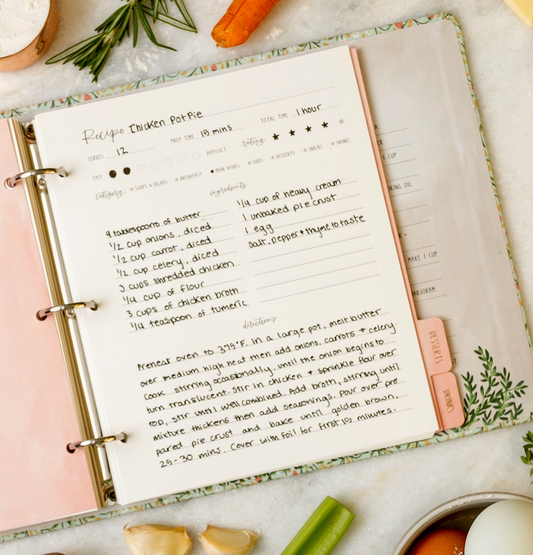 Recipe Chicken Pot Pie
SERVES 12 PREP TIME 15 mins TOTAL TIME 1 hour
EASY DIFFICULT rating
category SOUPS & SALADS BREAKFAST MAIN DISHES SIDES DESSERTS SNACKS DRINKS
ingredients
4 tablespoons of butter
1/2 cup onions, diced
1/2 cup carrot, diced
1/2 cup celery, diced
3 cups shredded chicken
1/4 cup of flour
3 cups of chicken broth
1/4 teaspoon of tumeric
1/4 cup of heavy cream
1 unbaked pie crust
1 egg
salt, pepper + thyme to taste
directions
Preheat oven to 375°F. In a large pot, melt butter
over medium high heat then add onions, carrots + celery
cook stirring occasionally, until the onion begins to
turn translucent. Stir in chicken + sprinkle flour over
top, stir until well combined. Add broth, stirring until
mixture thickens then add seasonings. Pour over pre
pared pie crust and bake until golden brown.
25-30 mins. Cover with foil for first 15 minutes.
CUP
KING OIL
MAKE 1 CUP
MARJORAM
DESSERTS
DRINKS